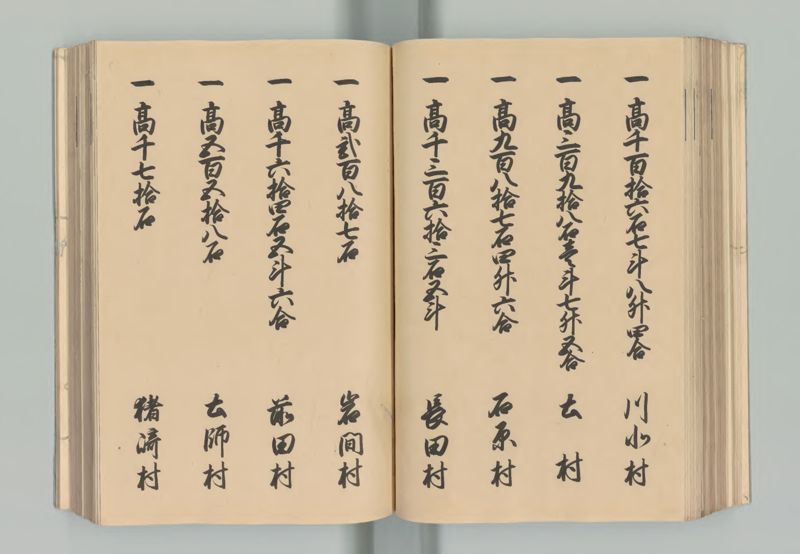 一 高千百拾六石七斗八升四合 川北村
一 高三百九拾八石壱斗七升五合 土村
一 高九百八拾七石四升六合 石原村
一 高千三百六拾三石五斗 長田村
一 高弐百八拾七石 岩間村
一 高千六拾四石五斗六合 前田村
一 高五百五拾八石 土師村
一 高千七拾石 猪崎村